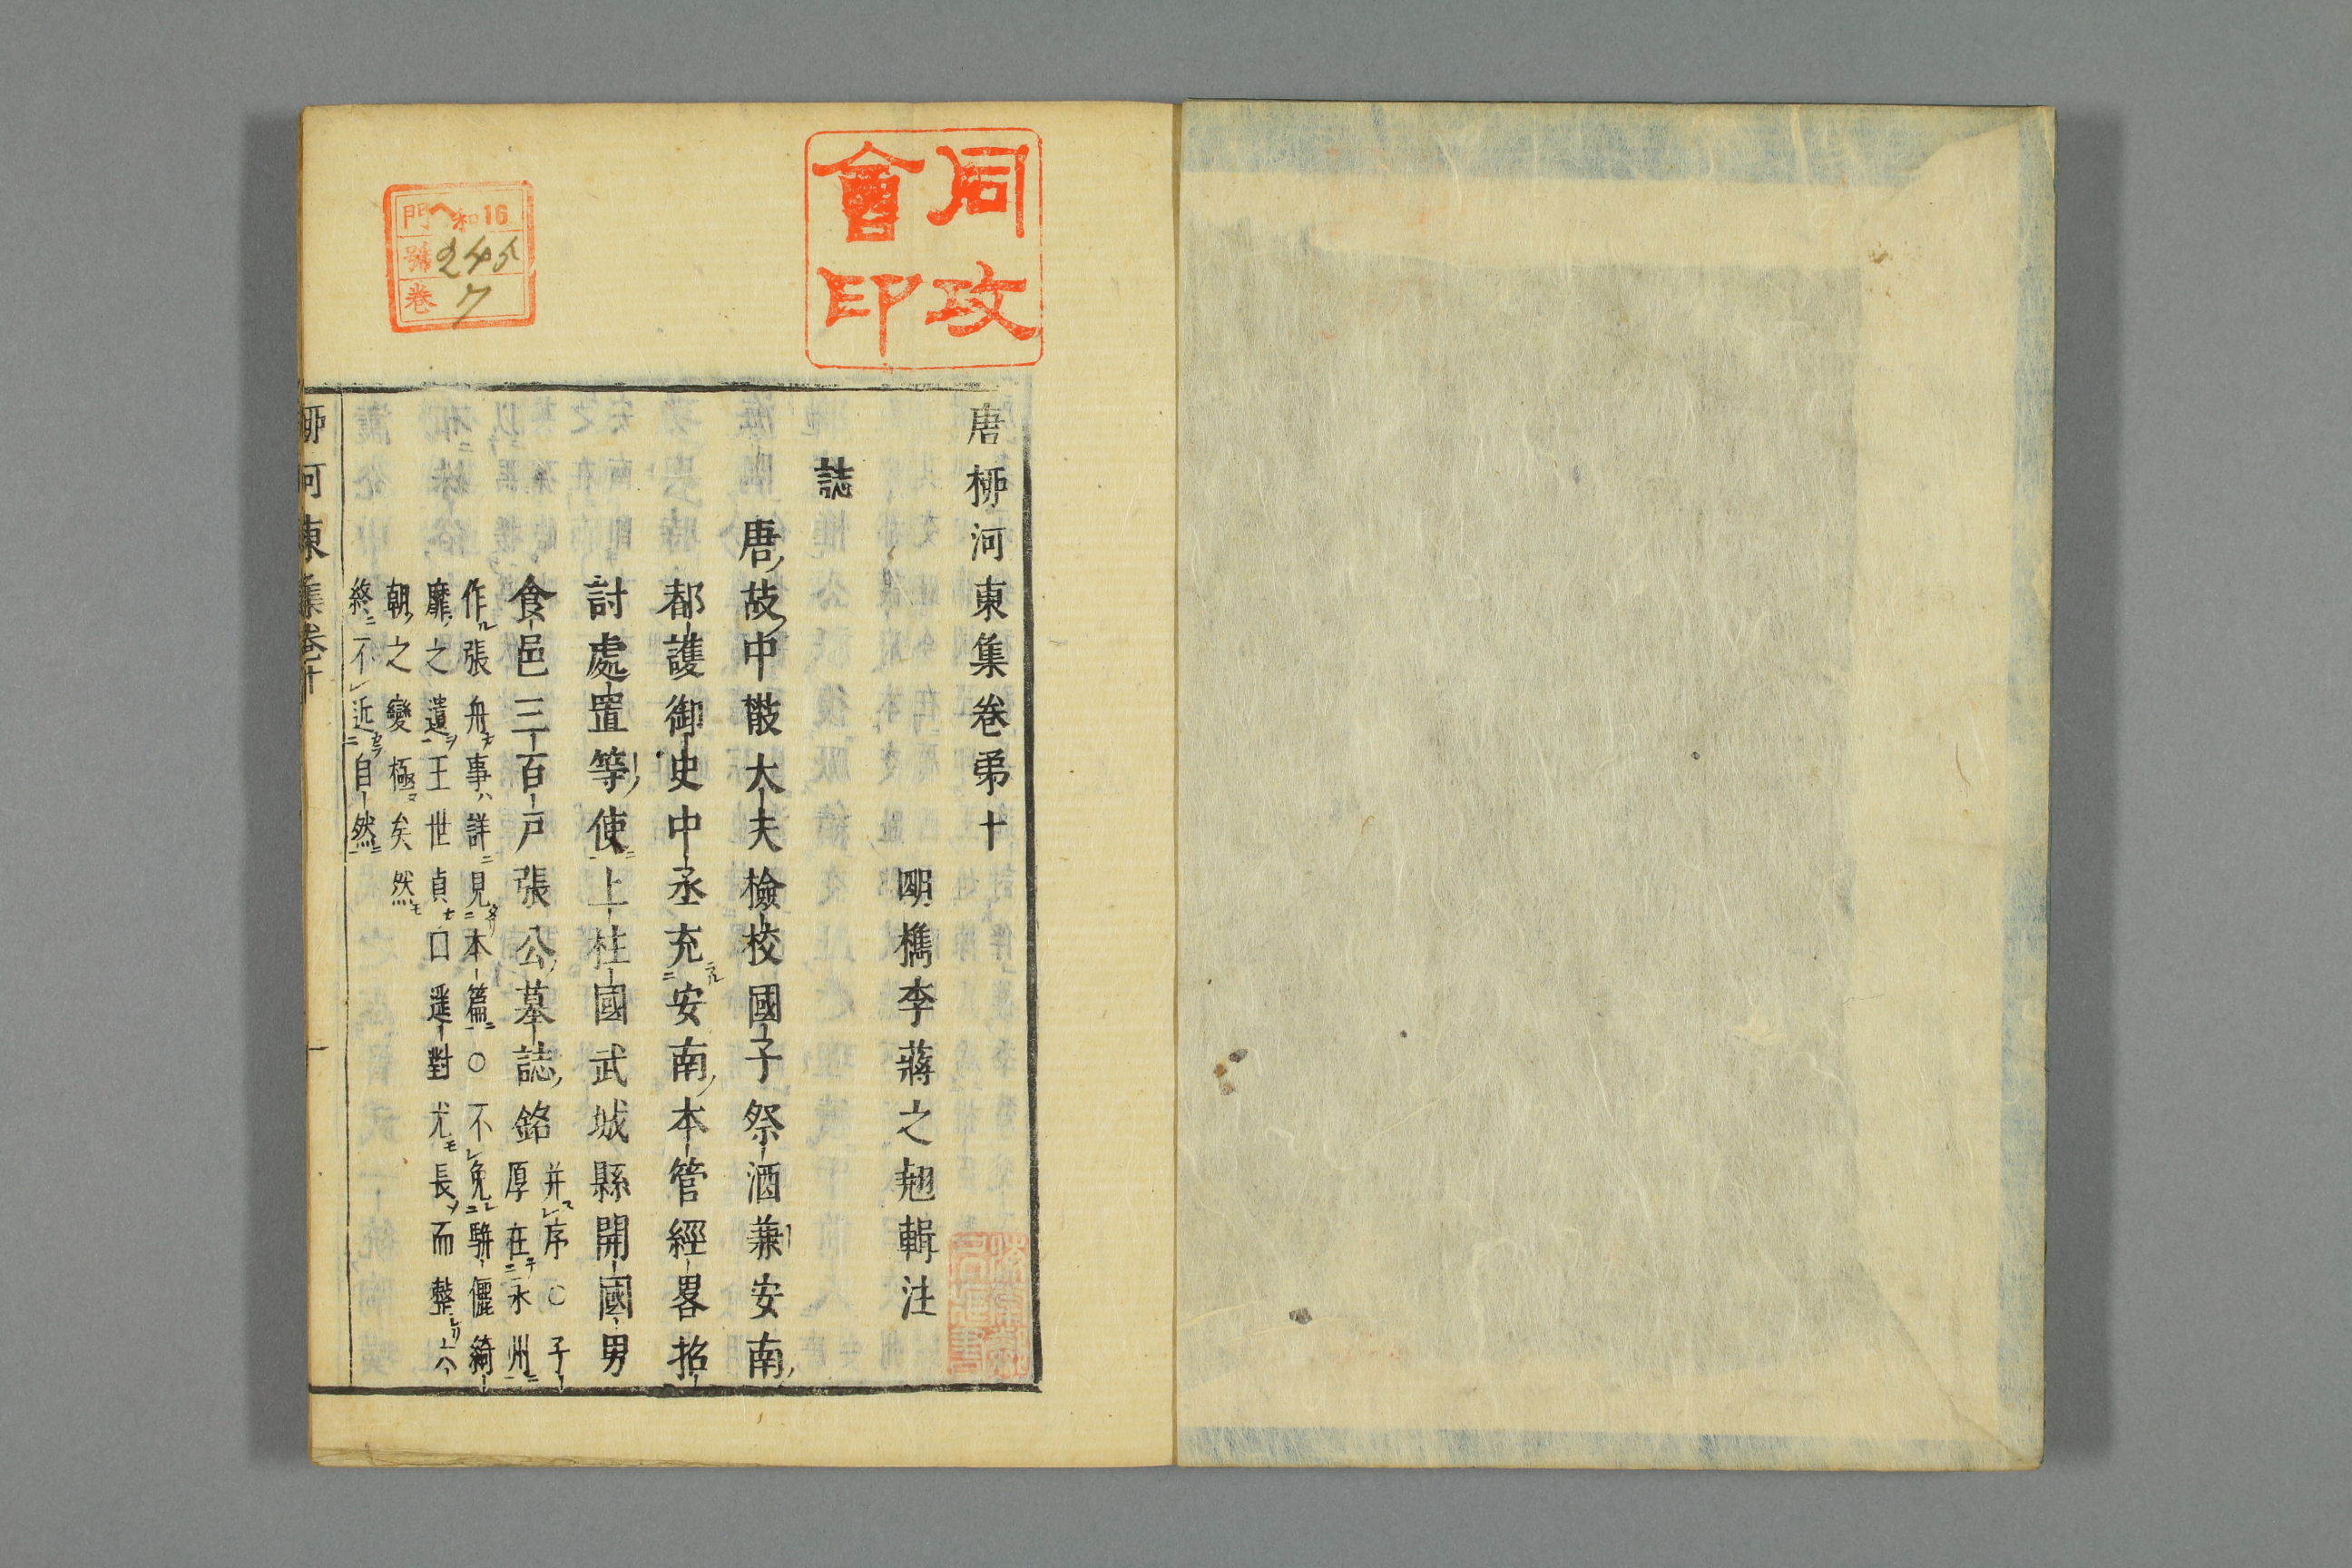 同攻
會印
門 ヘ和16
號 245
卷 7
唐柳河東集卷弟十
明檇李蔣之翹輯注
誌
唐故中散大夫檢校國子祭酒兼安南
都護御史中丞充安南本管經畧招
討處置等使上柱國武城縣開國男
食邑三百戶張公墓誌銘并序○子
厚在永州
作張舟事詳見本篇○不免駢儷綺
靡之遺王世貞口遥對尤長而整六
朝之變極矣然
終不近自然
柳河東集卷十
一